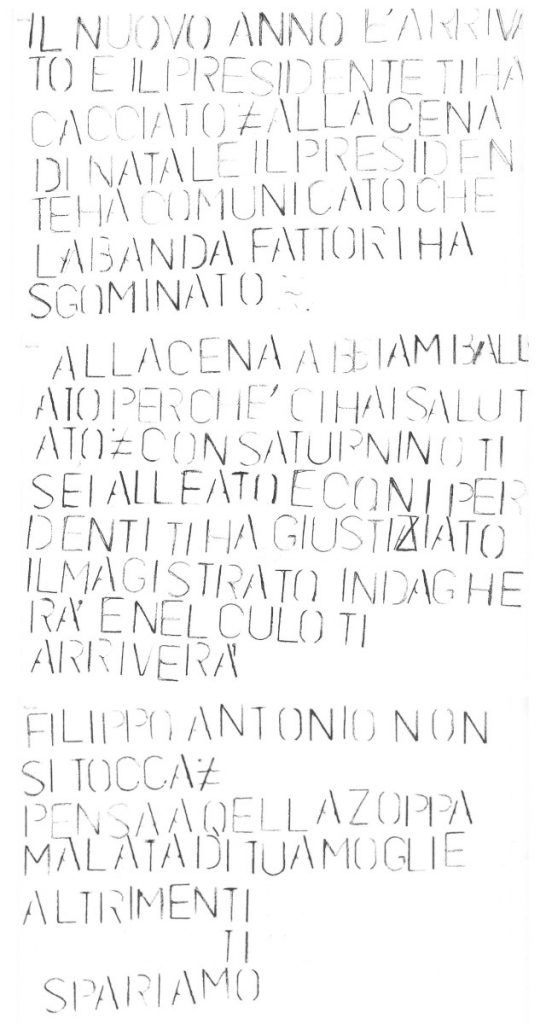 IL NUOVO ANNO E'ARRIVA
TO E IL PRESIDENTE TI HA
CACCIATO ≠ ALLA CENA
DI NATALE IL PRESIDEN
TE HA COMUNICATO CHE
LA BANDA FATTORI HA
SGOMINATO
ALLA CENA ABBIAM BALL
ATO PERCHE' CI HAI SALUT
ATO ≠ CON SATURNINO TI
SEI ALLEATO E CON I PER
DENTI TI HA GIUSTIZIATO
IL MAGISTRATO INDAGHE
RA' E NEL CULO TI
ARRIVERA'
FILIPPO ANTONIO NON
SI TOCCA ≠
PENSA A QELLA ZOPPA
MALATA DI TUA MOGLIE
ALTRIMENTI
TI
SPARIAMO